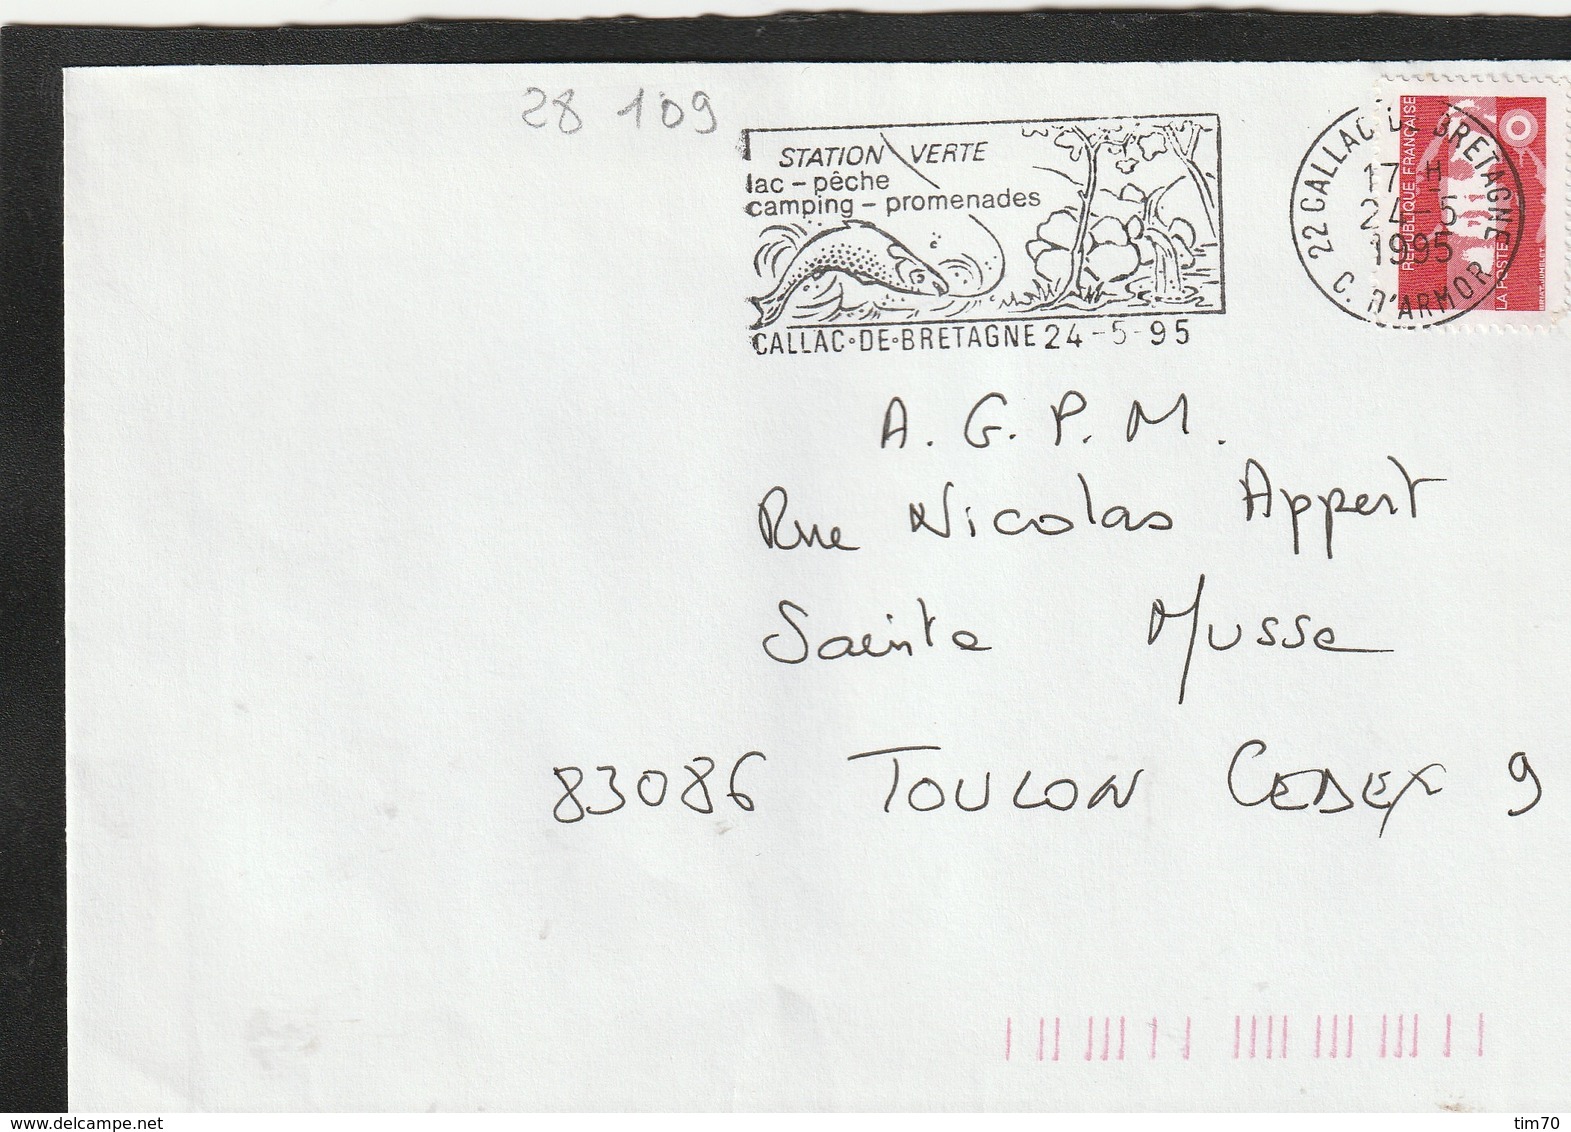 28 109
STATION VERTE
lac - pêche
camping - promenades
CALLAC·DE·BRETAGNE 24-5-95
22 CALLAC DE BRETAGNE
17 H
24-5
1995
C. D'ARMOR
REPUBLIQUE FRANÇAISE
LA POSTE
A. G. P. M.
Rue Nicolas Appert
Sainte Musse
83086 TOULON CEDEX 9
delcampe.net
tim70